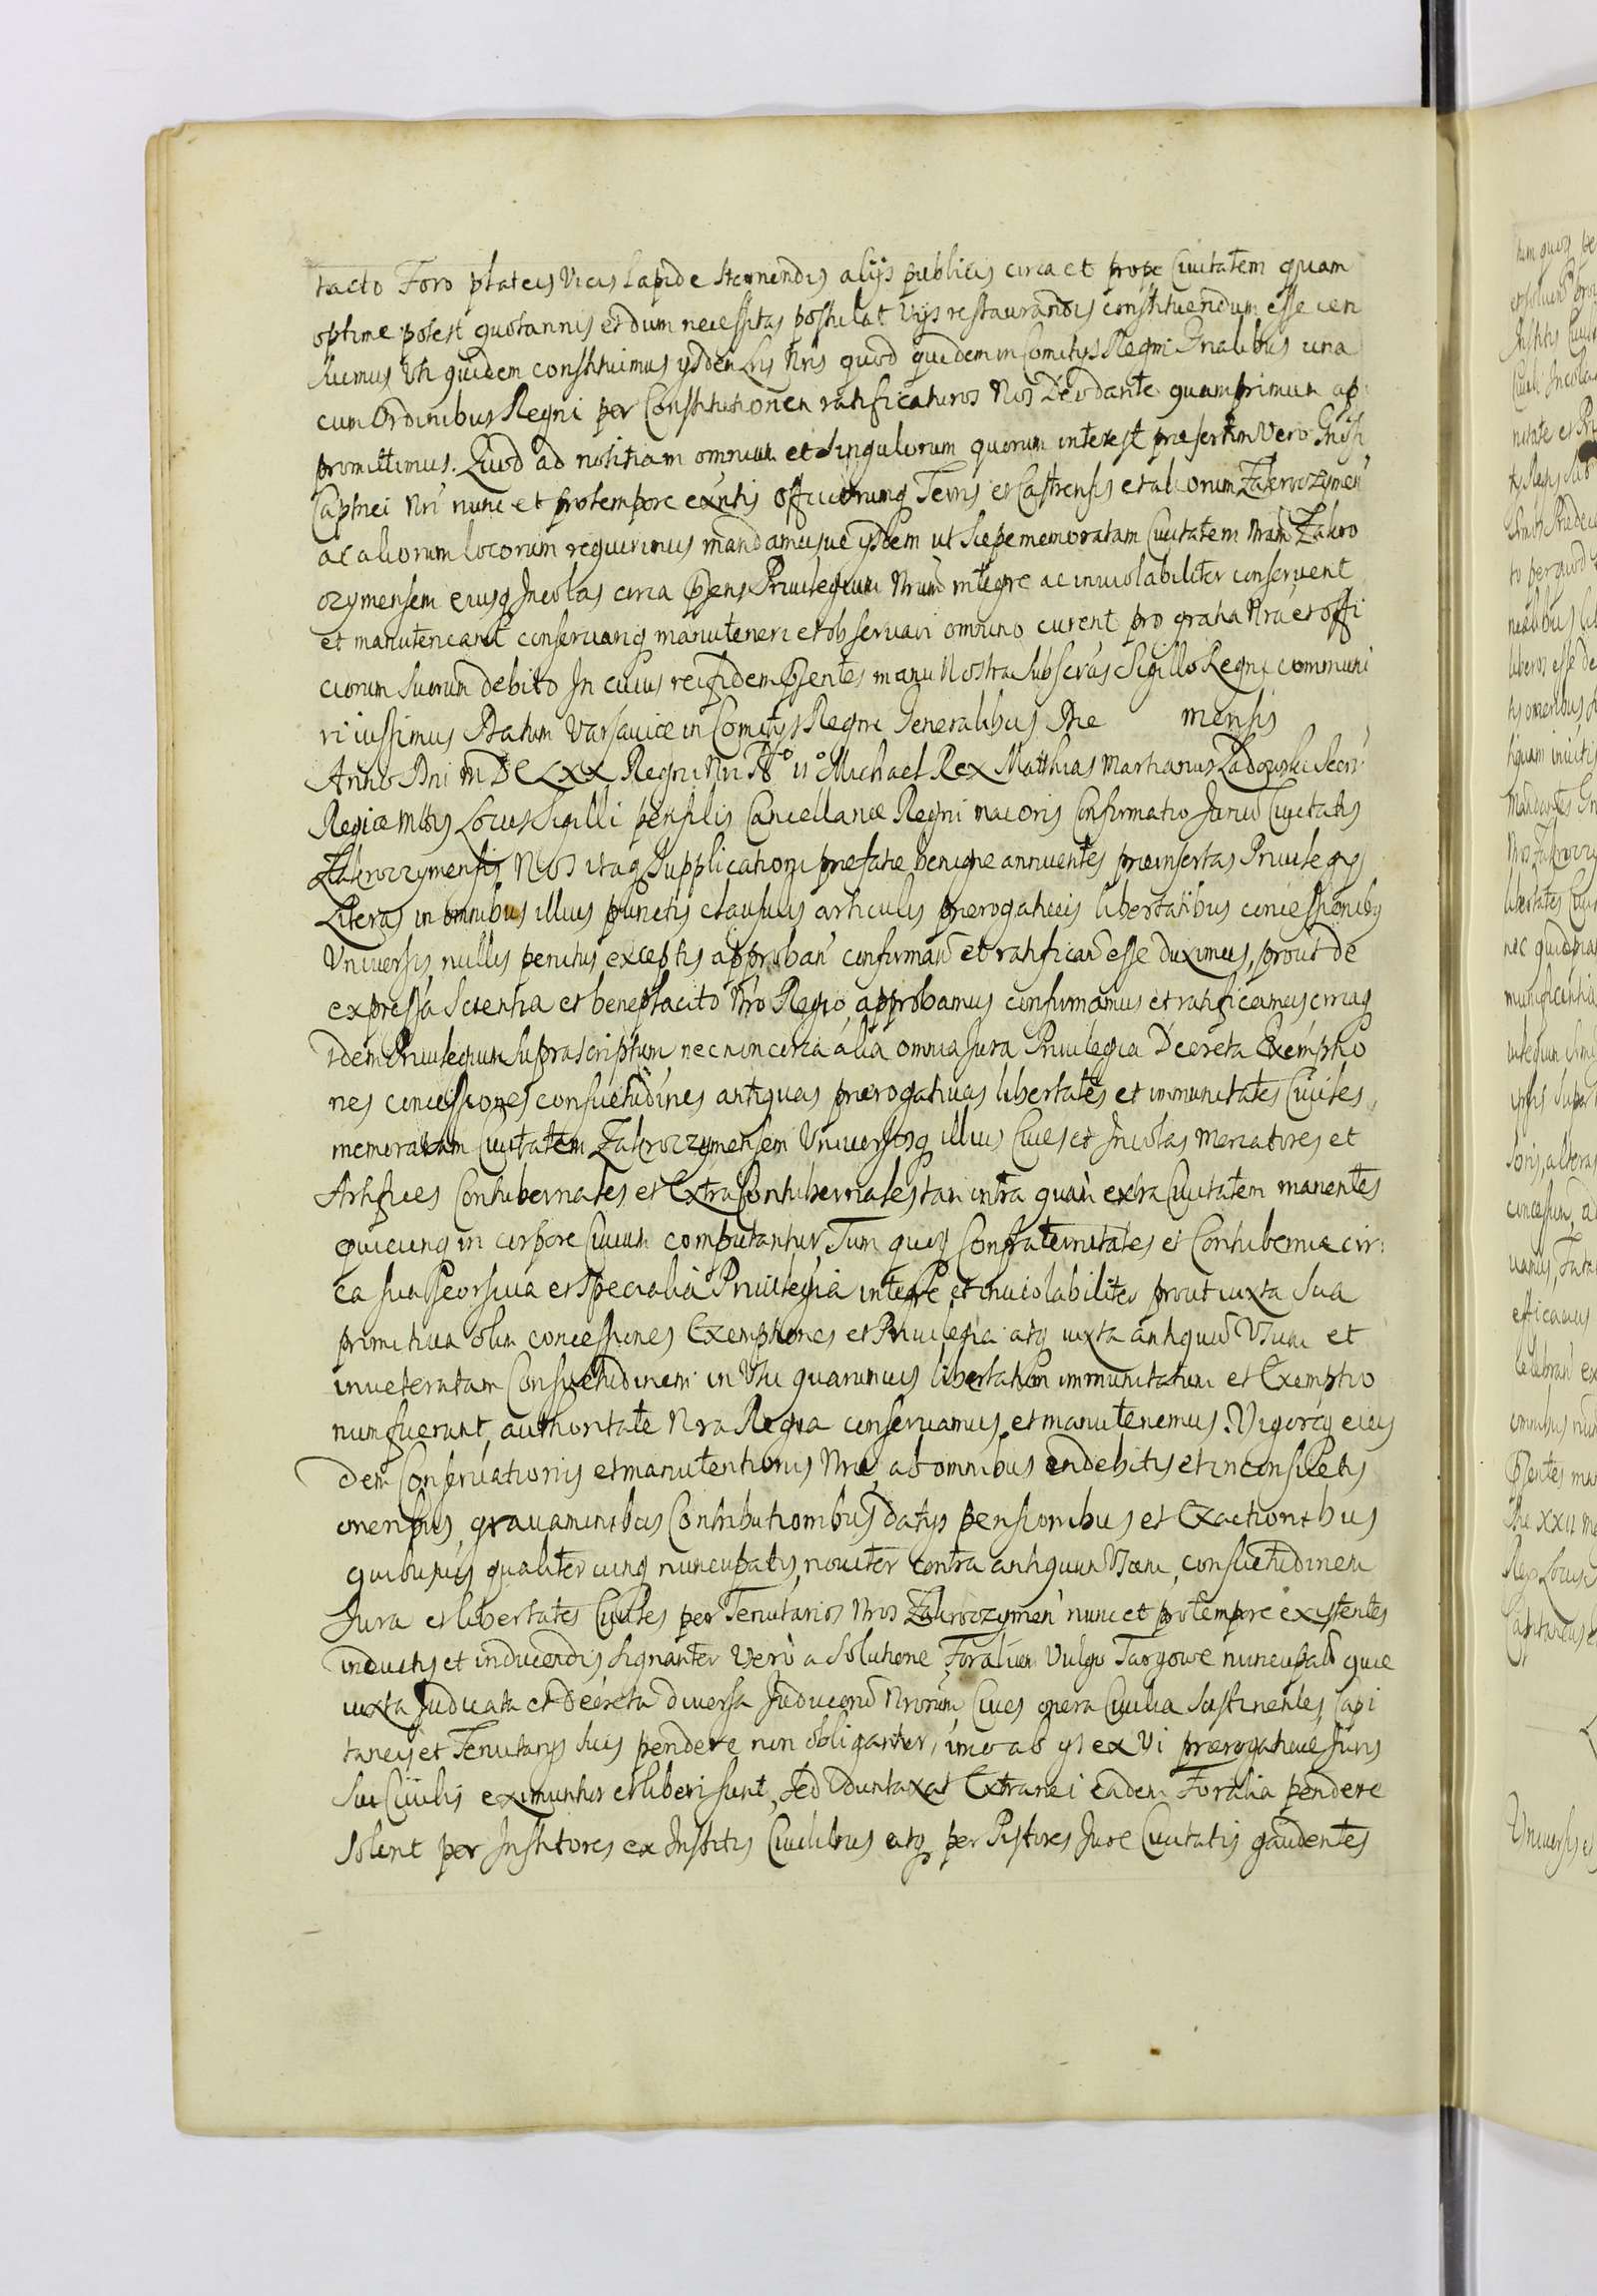 tacto Foro plateis Vicis Lapide sternendis alijs publicis circa et prope Civitatem quam
optime potest quotannis et dum necessitas postulat Vijs restaurandis constituendum esse cen
suimus Uti quidem constituimus ijsdem Lris Nris quod quidem in Comitijs Regni Gnalibus una
cum Ordinibus Regni per Constitutionem ratificaturos Nos Deo dante quamprimum ap
promittimus. Quod ad notitiam omnium et singulorum quorum interest præsertim Vero Gnosi
Captnei Nri nunc et protempore exntis Officiorumq Terris et Castrensis et aliorum Zakroczymen
ac aliorum locorum requirimus mandamusque ijsdem ut sæpememoratam Civitatem Nram Zakro
czymensem eiusq Incolas circa Pñs Privilegium Nrum integre ac inviolabiliter conservent
et manuteneant conservariq manuteneri et observari omnino curent pro gratia Nra et offi
ciorum suorum debito In cuius rei fidem Pñtes manu Nostra Subscras Sigillo Regni communi
ri iussimus Datum Varsaviæ in Comitijs Regni Generalibus Die mensis
Anno Dni MDCLXX Regni Nri Ao II o Michael Rex Matthias Martianus Ladowski Secr
Regiæ Mttis Locus Sigilli pensilis Cancellariæ Regni maioris Confirmatio Jurium Civitatis
Zakroczymensis Nos itaq Supplicationi prefate benigne annuentes præinsertas Privilegij
Literas in omnibus illius punctis clausulis articulis prærogativis libertatibus concessionibus
Universis nullis penitus exceptis approban confirman et ratifican esse duximus, prout de
expressa Scientia et beneplacito Nro Regio, approbamus confirmamus et ratificamus circaq
idem Privilegium supra scriptum, nec non circa alia omnia Jura Privilegia Decreta Exemptio
nes concessiones consuetudines antiquas prærogativas libertates et immunitates Civiles
memoratam Civitatem Zakroczymensem Universosq illius Cives et Incolas Mercatores et
Artifices Contubernales et Extra Contubernales tam intra quam extra Civitatem manentes
quicunq in corpore Civium computantur, Tum quoq Confraternitates et Contubernia cir
ca sua Seorsiva et Specialia Privilegia integre et inviolabiliter prout iuxta sua
primitiva olim concessiones Exemptiones et Privilegia atq iuxta antiquum Usum et
inveteratam Consuetudinem in Usu quarumvis libertatum immunitatum et Exemptio
num fuerunt, authoritate Nra Regia conservamus et manutenemus. Vigoreq eius
dem Conservationis et manutentionis Nræ, ab omnibus indebitis et inconsuetis
oneribus, gravaminibus Contributionibus datijs pensionibus et Exactionibus
quibusvis qualitercunq nuncupatis, noviter contra antiquum Usum, consuetudinem
Jura et libertates Civiles per Tenutarios Nros Zakroczymen nunc et protempore existentes
inductis et inducendis signanter Vero a Solutione Foralium Vulgo Targowe nuncupat quæ
iuxta Judicata et Decreta diversa Judiciorum Nrorum, Cives onera Civilia sustinentes, Capi
taneis et Tenutarijs suis pendere non obligantur, imo ab ijs ex Vi prærogativæ Juris
sui Civilis eximuntur et liberi sunt, sed duntaxat Extranei eadem Foralia pendere
solent per Institores ex Institis Civilibus atq per Pistores Jure Civitatis gaudentes